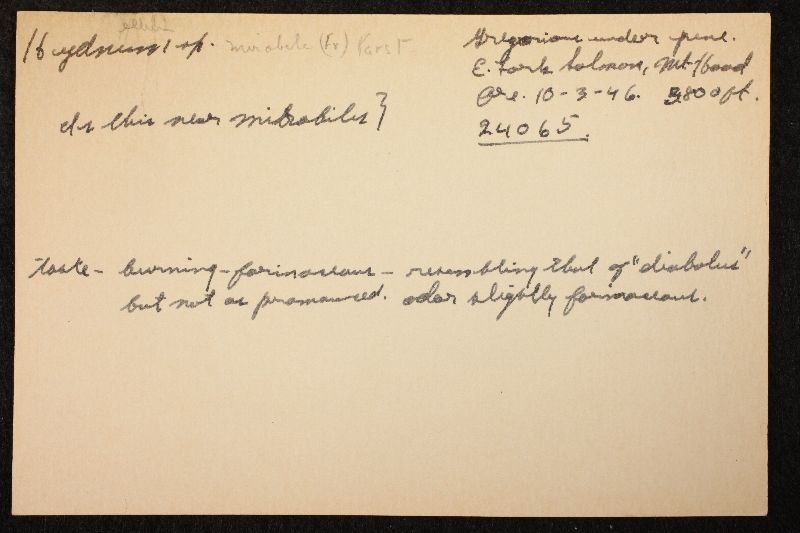 Hydnum sp. mirabile (Fr) Karst
Gregarious under pine.
E. Fork Salmon, Mt. Hood
Ore. 10-3-46. 3800 ft.
24065.
Is this near mirabilis?
taste - burning - farinaceous - resembling that of "diabolus"
but not as pronounced. odor slightly farinaceous.